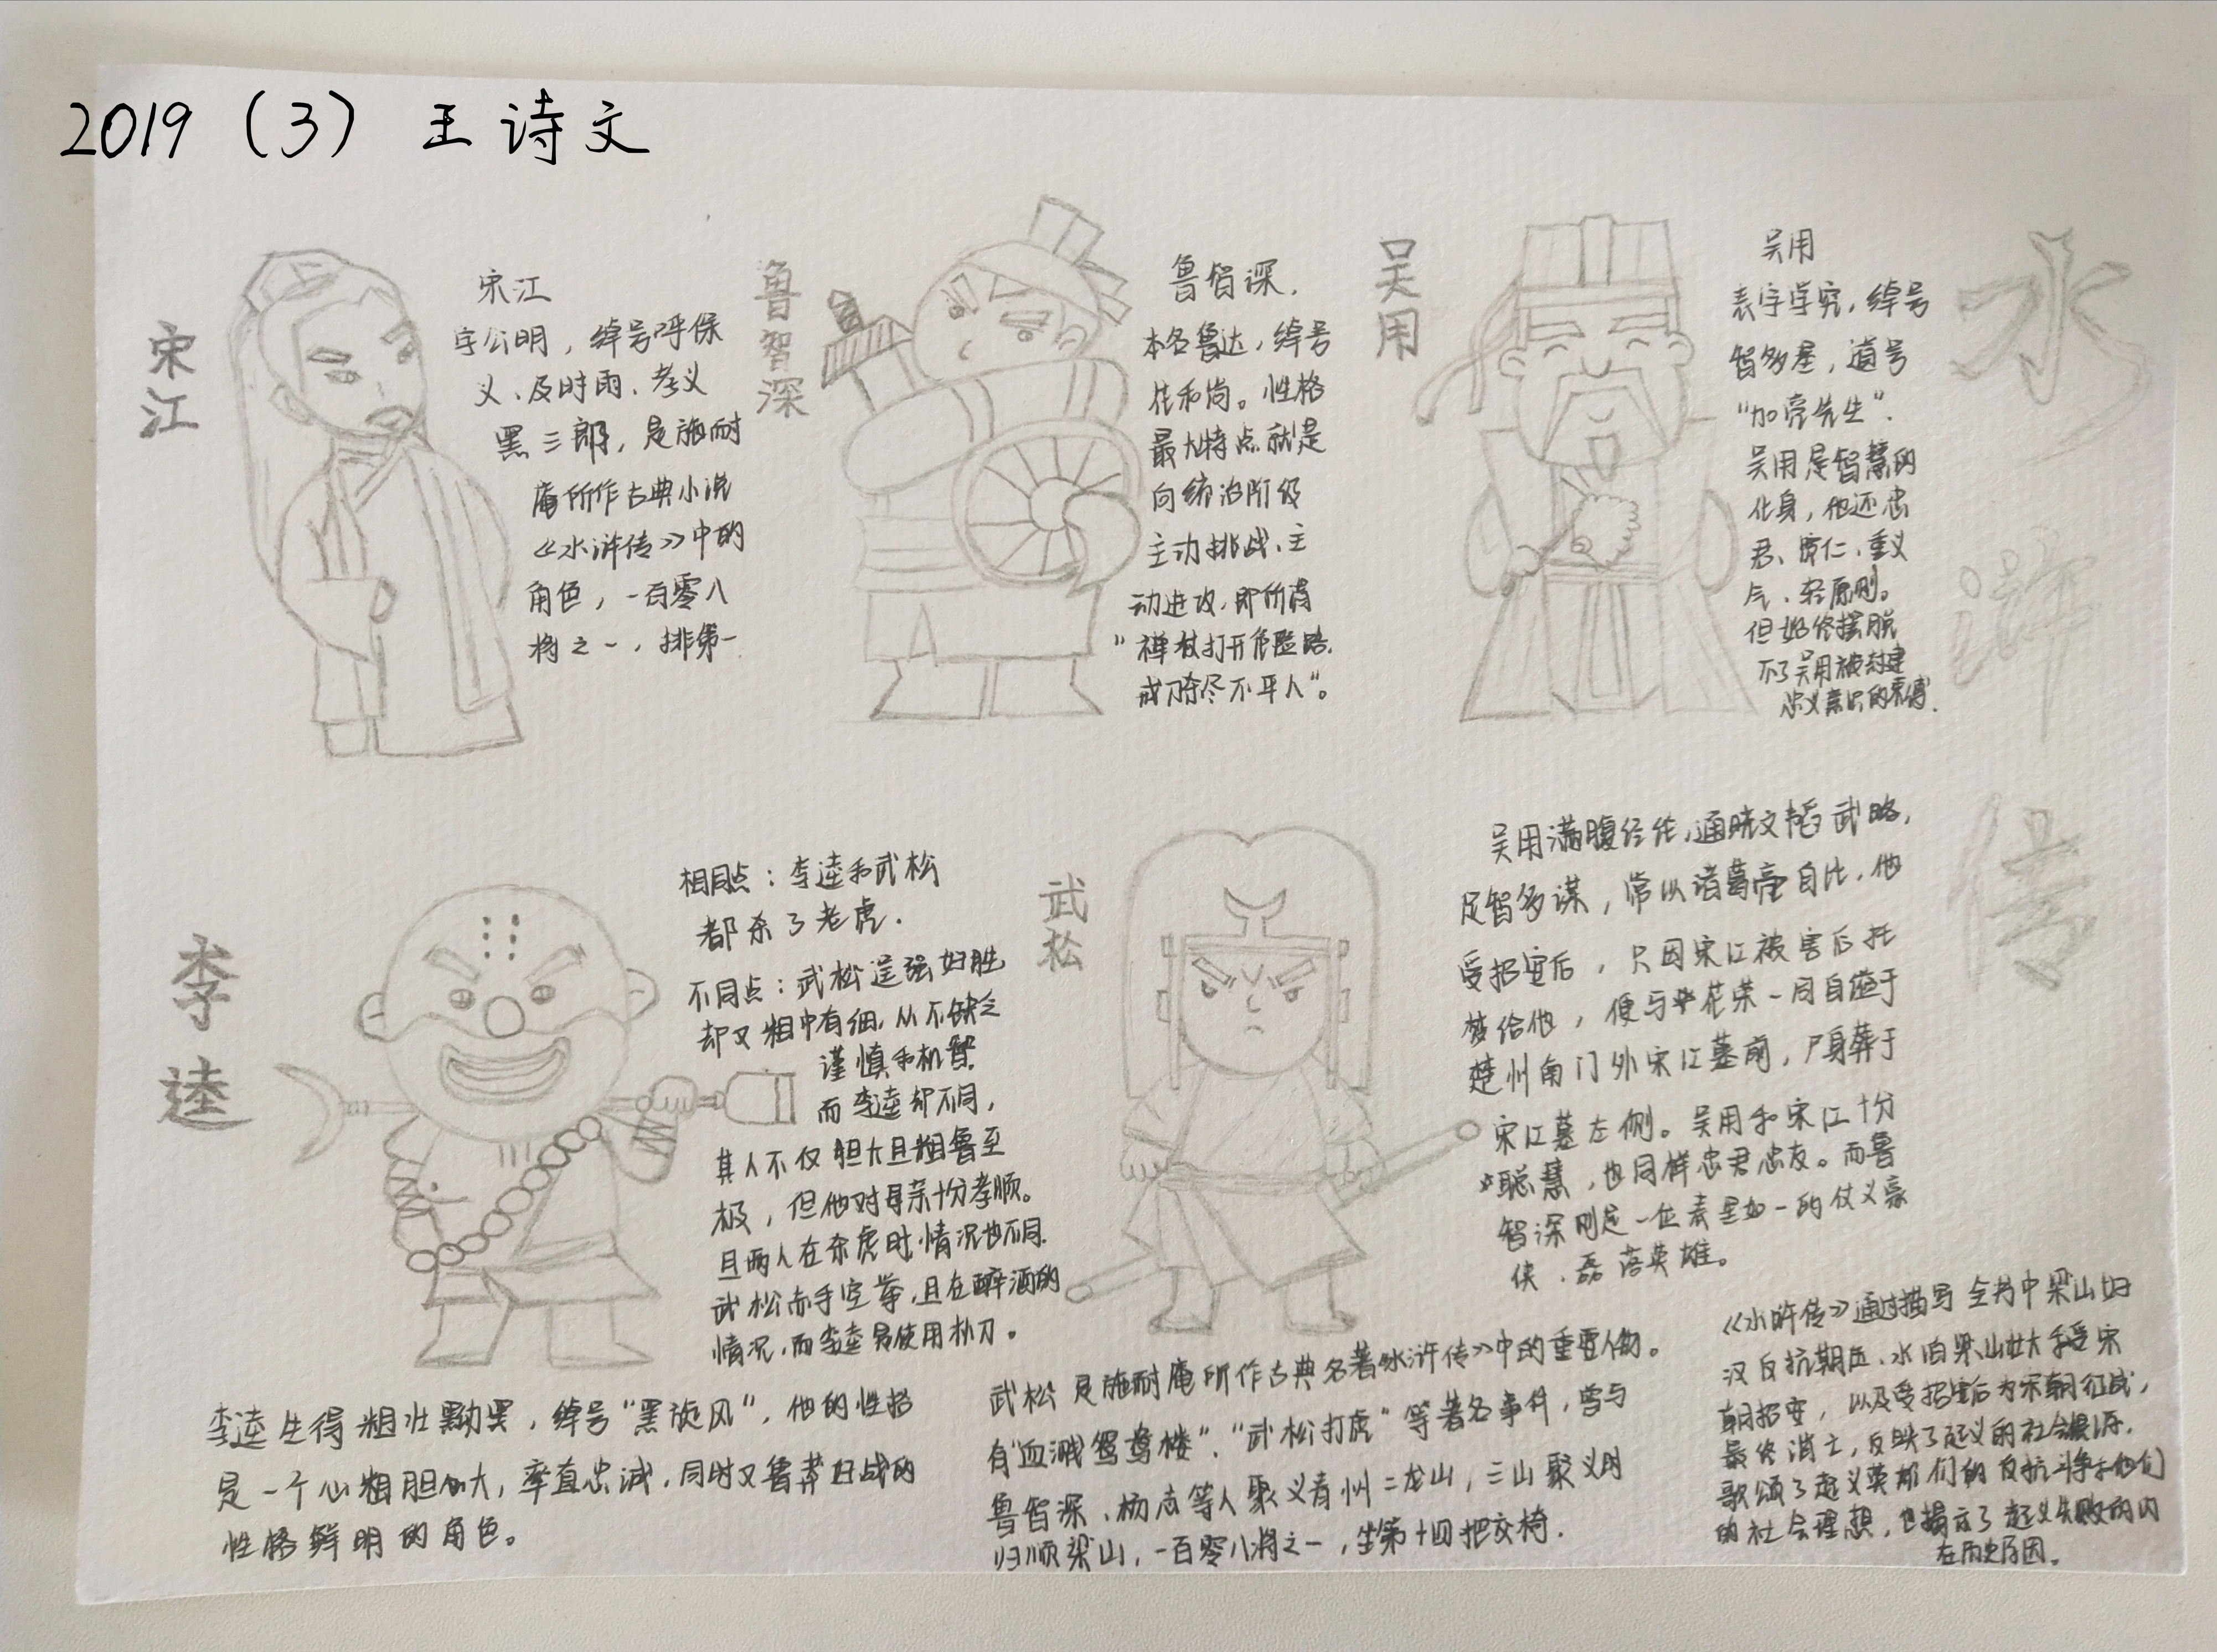 2019（3）王诗文
水浒传
宋江
宋江
字公明，绰号呼保
义、及时雨、孝义
黑三郎，是施耐
庵所作古典小说
《水浒传》中的
角色，一百零八
将之一，排第一
鲁智深
鲁智深.
本名鲁达，绰号
花和尚。性格
最大特点就是
向统治阶级
主动挑战、主
动进攻，即所谓
"禅杖打开危险路，
戒刀杀尽不平人"。
吴用
吴用
表字学究，绰号
智多星，道号
"加亮先生".
吴用是智慧的
化身，他还忠
君、厚仁、重义
气、轻原则。
但始终摆脱
不了吴用被封建
忠义意识的束缚.
李逵
相同点：李逵和武松
都杀了老虎.
不同点：武松逞强好胜
却又粗中有细，从不缺乏
谨慎和机智.
而李逵却不同，
其人不仅胆大且粗鲁至
极，但他对母亲十分孝顺。
且两人在杀虎时情况也不同.
武松赤手空拳，且在醉酒的
情况，而李逵是使用朴刀。
李逵生得粗壮黝黑，绰号"黑旋风"，他的性格
是一个心粗胆大，率直忠诚，同时又鲁莽好战的
性格鲜明的角色。
武松
武松是施耐庵所作古典名著《水浒传》中的重要人物。
有"血溅鸳鸯楼"、"武松打虎"等著名事件，曾与
鲁智深、杨志等人聚义青州二龙山，三山聚义时
归顺梁山，一百零八将之一，坐第十四把交椅.
吴用满腹经纶，通晓文韬武略，
足智多谋，常以诸葛亮自比，他
受招安后，只因宋江被害后托
梦给他，便与花荣一同自缢于
楚州南门外宋江墓前，尸身葬于
宋江墓左侧。吴用和宋江十分
聪慧，也同样忠君忠友。而鲁
智深则是一位表里如一的仗义豪
侠、磊落英雄。
《水浒传》通过描写全书中梁山好
汉反抗朝廷、水泊梁山壮大和受宋
朝招安，以及受招安后为宋朝征战，
最终消亡，反映了起义的社会根源，
歌颂了起义英雄们的反抗斗争和他们
的社会理想，也揭示了起义失败的内
在历史原因。